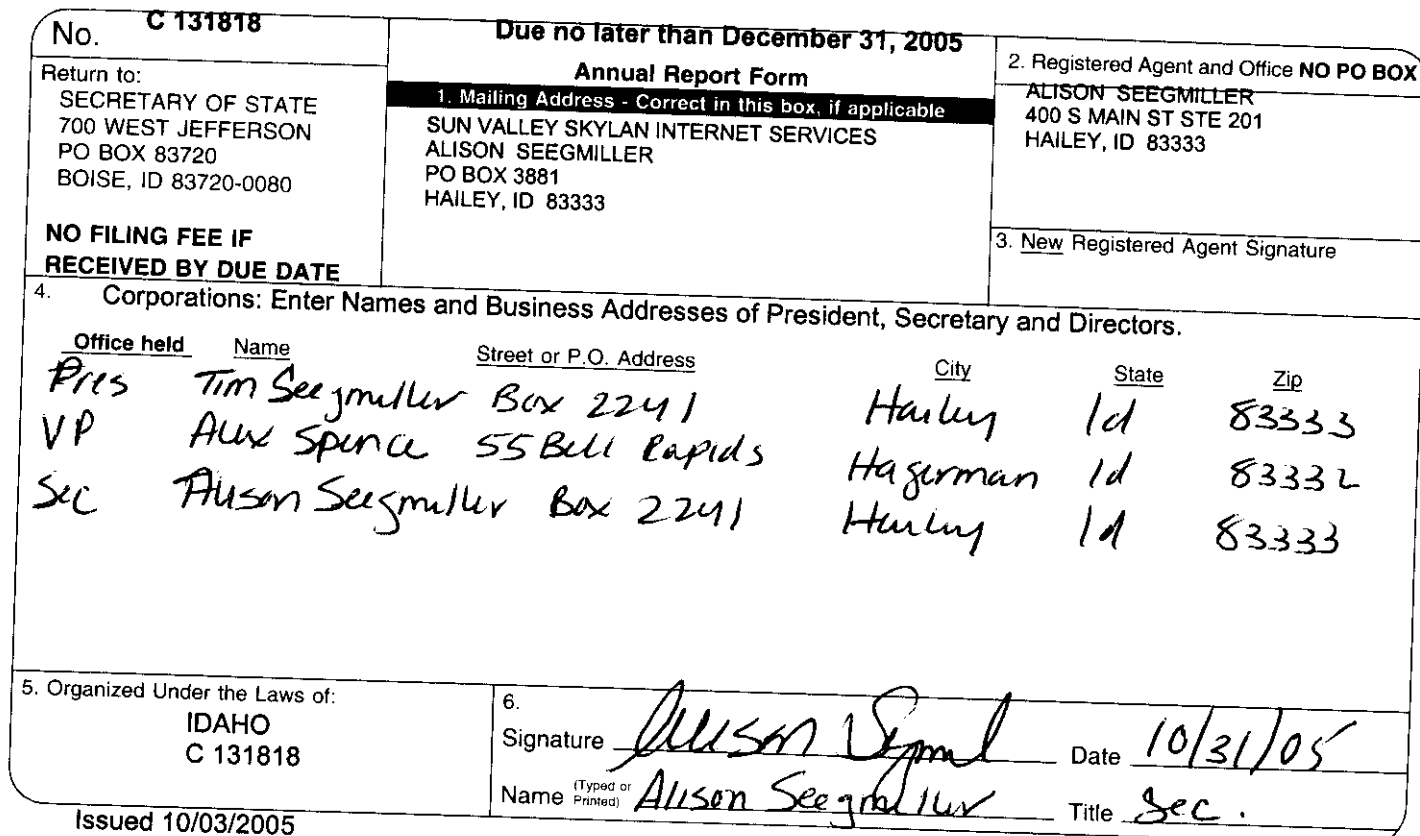 No. C 131818
Return to:
SECRETARY OF STATE
700 WEST JEFFERSON
PO BOX 83720
BOISE, ID 83720-0080
NO FILING FEE IF
RECEIVED BY DUE DATE
Due no later than December 31, 2005
Annual Report Form
1. Mailing Address - Correct in this box, if applicable
SUN VALLEY SKYLAN INTERNET SERVICES
ALISON SEEGMILLER
PO BOX 3881
HAILEY, ID 83333
2. Registered Agent and Office NO PO BOX
ALISON SEEGMILLER
400 S MAIN ST STE 201
HAILEY, ID 83333
3. New Registered Agent Signature
4. Corporations: Enter Names and Business Addresses of President, Secretary and Directors.
Office held Name Street or P.O. Address City State Zip
Pres Tim Seegmiller Box 2241 Hailey Id 83333
VP Alex Spence 55 Bell Rapids Hagerman Id 83332
Sec Alison Seegmiller Box 2241 Hailey Id 83333
5. Organized Under the Laws of:
IDAHO
C 131818
6.
Signature Alison Date 10/31/05
Name (Typed or Printed) Alison Seegmiller Title Sec.
Issued 10/03/2005